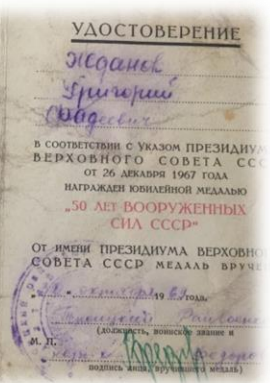 УДОСТОВЕРЕНИЕ
Жданов
Григорий
Фадеевич
В СООТВЕТСТВИИ С УКАЗОМ ПРЕЗИДИУМ
ВЕРХОВНОГО СОВЕТА ССС
ОТ 26 ДЕКАБРЯ 1967 ГОДА
НАГРАЖДЕН ЮБИЛЕЙНОЙ МЕДАЛЬЮ
„50 ЛЕТ ВООРУЖЕННЫХ
СИЛ СССР“
ОТ ИМЕНИ ПРЕЗИДИУМА ВЕРХОВНО
СОВЕТА СССР МЕДАЛЬ ВРУЧЕ
октября 1969 года.
Троицкий
(должность, воинское звание и
М. П.
подпись лица, вручившего медаль)